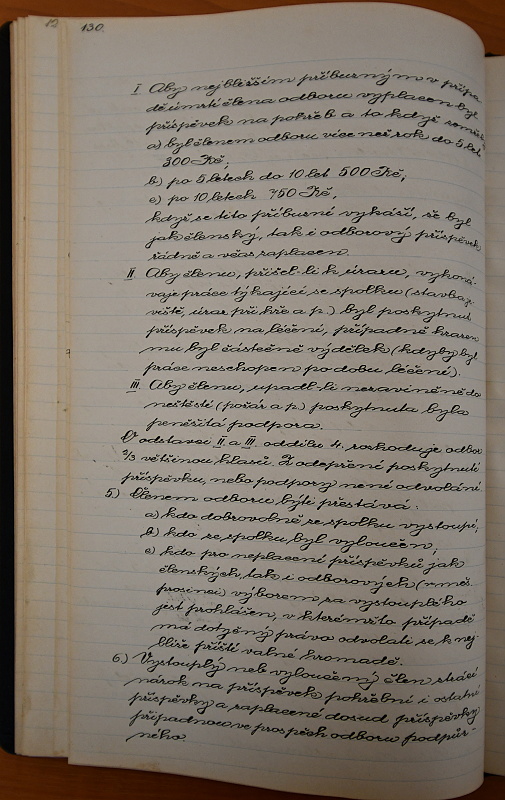 12
130.
I Aby nejbližším příbuzným v přípa-
dě úmrtí člena odboru vyplacen byl
příspěvek na pohřeb a to když
a) byl členem odboru více než rok do 5 let
300 Kč;
b) po 5 letech do 10 let 500 Kč;
c) po 10 letech 750 Kč,
když se tito příbuzní vykáží, že byl
jak členský, tak i odborový příspěvek
řádně a včas zaplacen.
II Aby členu, přišel-li k úrazu, vykoná-
vaje práce týkající se spolku (stavba
viště, úraz při hře a p.) byl poskytnut
příspěvek na léčení, případně hrazen
mu byl částečně výdělek (kdyby byl
práce neschopen po dobu léčení).
III Aby členu, upadl-li nezaviněně do
neštěstí (požár a p.) poskytnuta byla
peněžitá podpora.
O odstavci II a III oddílu 4. rozhoduje odbor
2/3 většinou hlasů. Z odepření poskytnutí
příspěvku, nebo podpory není odvolání
5) Členem odboru býti přestává:
a) kdo dobrovolně ze spolku vystoupí;
b) kdo ze spolku byl vyloučen;
c) kdo pro neplacení příspěvků jak
členských, tak i odborových (v měs.
prosinci) výborem za vystouplého
jest prohlášen, v kterémžto případě
má dotyčný právo odvolati se k nej-
bližší příští valné hromadě.
6) Vystouplý neb vyloučený člen ztrácí
nárok na příspěvek pohřební i ostatní
příspěvky a zaplacené dosud příspěvky
připadnou ve prospěch odboru podpůr-
ného.